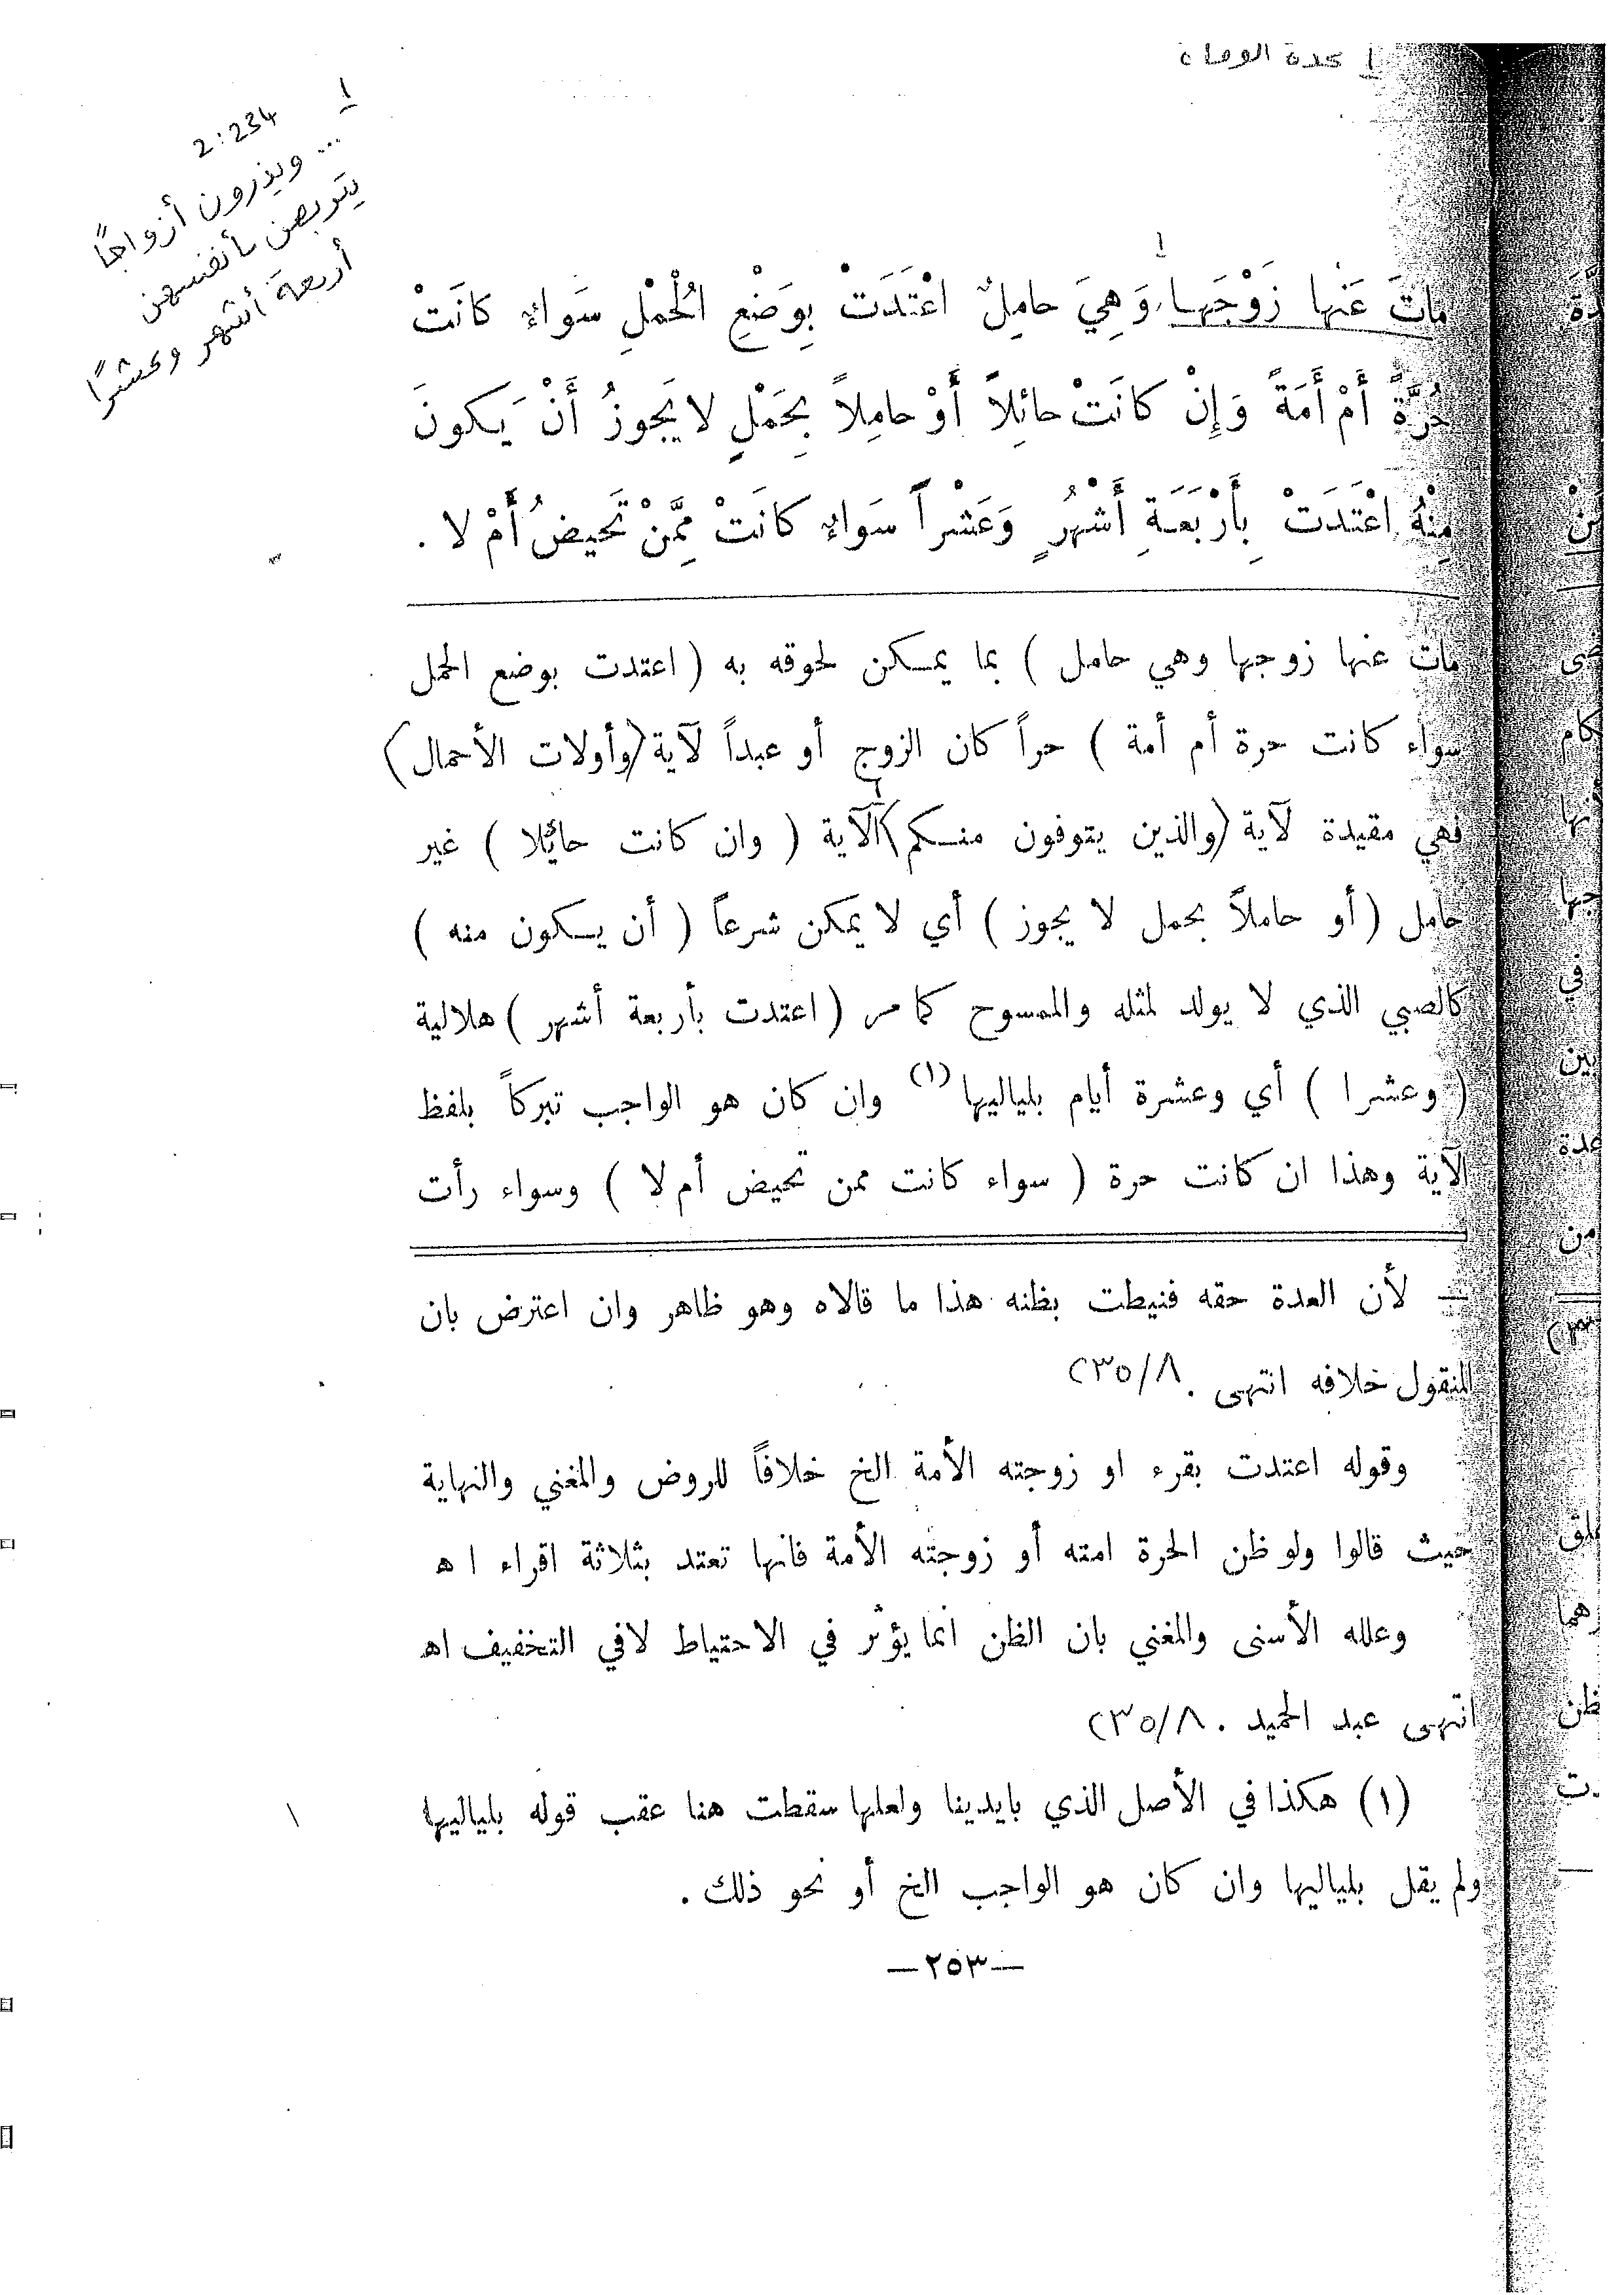 عدة الوفاة
١
2:234
... ويذرون أزواجًا
يتربصن بأنفسهن
أربعة أشهر وعشرًا
١
ماتَ عَنْها زَوْجَها وَهِيَ حامِلٌ اعْتَدَتْ بِوَضْعِ الْحَمْلِ سَواءٌ كانَتْ
حُرَّةً أَمْ أَمَةً وَإِنْ كانَتْ حائِلاً أَوْ حامِلاً بِحَمْلٍ لا يَجوزُ أَنْ يَكونَ
مِنْهُ اعْتَدَتْ بِأَرْبَعَةِ أَشْهُرٍ وَعَشْراً سَواءٌ كانَتْ مِمَّنْ تَحيضُ أَمْ لا .
مات عنها زوجها وهي حامل ) بما يمكن لحوقه به ( اعتدت بوضع الحمل
سواء كانت حرة أم أمة ) حراً كان الزوج أو عبداً لآية (وأولات الأحمال)
فهي مقيدة لآية (والذين يتوفون منكم) الآية ( وان كانت حائلا ) غير
حامل ( أو حاملاً بحمل لا يجوز ) أي لا يمكن شرعاً ( أن يكون منه )
كالصبي الذي لا يولد لمثله والممسوح كما مر ( اعتدت بأربعة أشهر ) هلالية
( وعشرا ) أي وعشرة أيام بلياليها (١) وان كان هو الواجب تبركاً بلفظ
الآية وهذا ان كانت حرة ( سواء كانت ممن تحيض أم لا ) وسواء رأت
— لأن العدة حقه فنيطت بظنه هذا ما قالاه وهو ظاهر وان اعترض بان
المنقول خلافه انتهى . ٢٣٥/٨
وقوله اعتدت بقرء او زوجته الأمة الخ خلافاً للروض والمغني والنهاية
حيث قالوا ولو ظن الحرة امته أو زوجته الأمة فانها تعتد بثلاثة اقراء ا ه
وعلله الأسنى والمغني بان الظن انما يؤثر في الاحتياط لا في التخفيف اه
انتهى عبد الحميد . ٢٣٥/٨
(١) هكذا في الأصل الذي بايدينا ولعلها سقطت هنا عقب قوله بلياليها
ولم يقل بلياليها وان كان هو الواجب الخ أو نحو ذلك .
— ٢٥٣ —